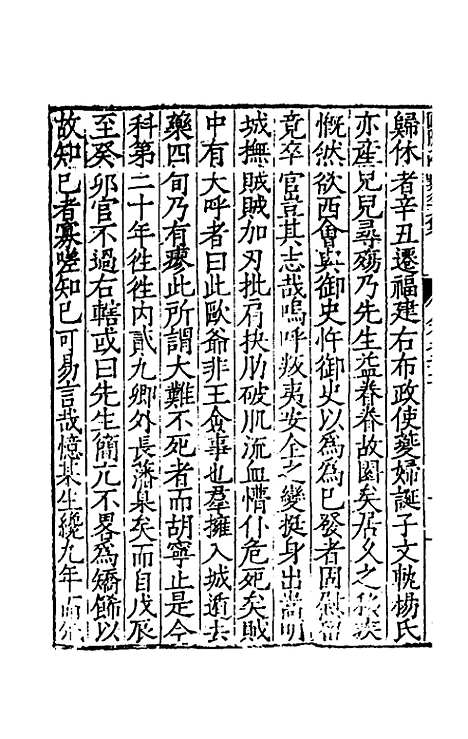 歸休者辛丑遷福建右布政使孿婦誕子文軏楊氏
亦產兒兒尋殤乃先生益眷眷故園矣居久之移疾
慨然欲西會與御史忤御史以為為已發者固慰留
竟卒官豈其志哉嗚呼叛夷安全之變挺身出嵩明
城撫賊賊加刃批肩抉肋破肌流血懵仆危死矣賊
中有大呼者曰此歐爺非王僉事也羣擁入城遁去
藥四旬乃有瘳此所謂大難不死者而胡寧止是今
科第二十年徃徃內貳九卿外長藩臬矣而自戊辰
至癸卯官不過右轄或曰先生簡亢不畧為矯飾以
故知巳者寡嗟知巳可易言哉憶某生纔九年而